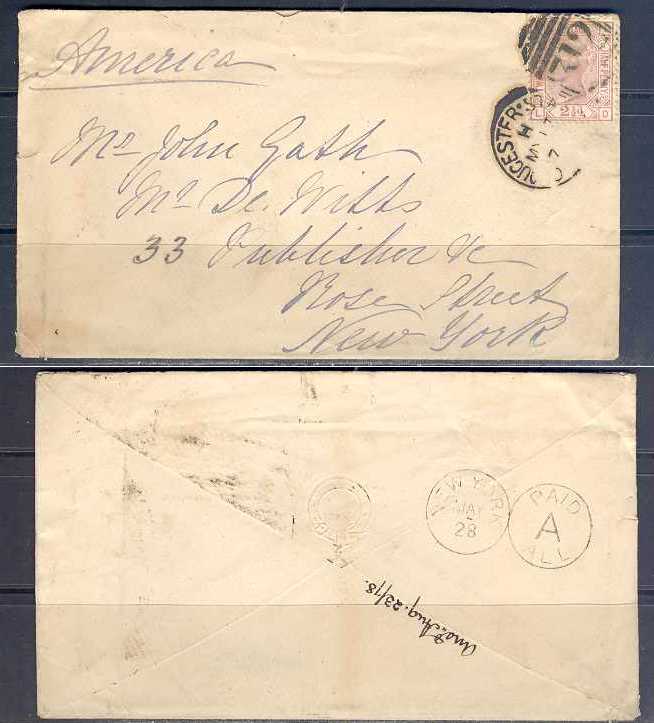 America
Mr John Gath
Mr De. Witts
33 Publisher &c
Rose Street
New York
312
2½d
L
D
MY 17
NEW YORK
MAY
28
PAID
A
ALL
Ansd. Aug. 23/78.